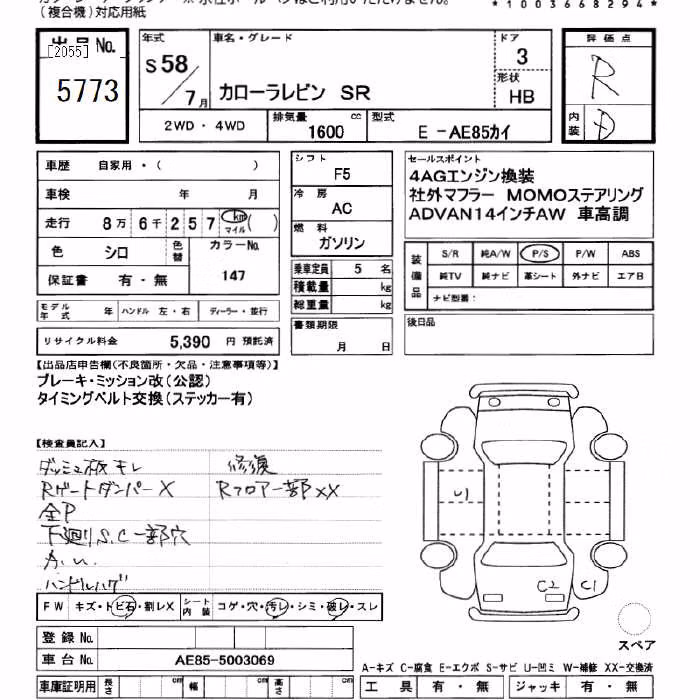 (複合機)対応用紙
*1003668294*
出品No.
[2055]
5773
年式
S58/7月
車名・グレード
カローラレビン SR
ドア
3
形状
HB
2WD・4WD
排気量
1600 cc
型式
E-AE85カイ
評価点
R
内装
D
車歴 自家用・( )
車検 年 月
走行 8万6千257 km マイル( )
色 シロ 色替 カラーNo. 147
保証書 有・無
モデル年式 年 ハンドル 左・右 ディーラー・並行
リサイクル料金 5,390 円 預託済
シフト
F5
冷房
AC
燃料
ガソリン
乗車定員 5 名
積載量 kg
総重量 kg
書類期限
月 日
セールスポイント
4AGエンジン換装
社外マフラー MOMOステアリング
ADVAN14インチAW 車高調
装備品
S/R 純A/W P/S P/W ABS
純TV 純ナビ 革シート 外ナビ エアB
ナビ型番:
後日品
【出品店申告欄(不良箇所・欠品・注意事項等)】
ブレーキ・ミッション改(公認)
タイミングベルト交換(ステッカー有)
【検査員記入】
ダッシュ板キレ 修復
Rゲートダンパー X Rフロアー部XX
全P
下廻りS.C一部穴
ハンドルハゲ
U1
C2
C1
FW キズ・トビ石・割レX シート内装 コゲ・穴・汚レ・シミ・破レ・スレ
登録No.
車台No. AE85-5003069
車庫証明用 長さ cm 幅 cm 高さ cm
スペア
A-キズ C-腐食 E-エクボ S-サビ U-凹ミ W-補修 XX-交換済
工具 有・無 ジャッキ 有・無